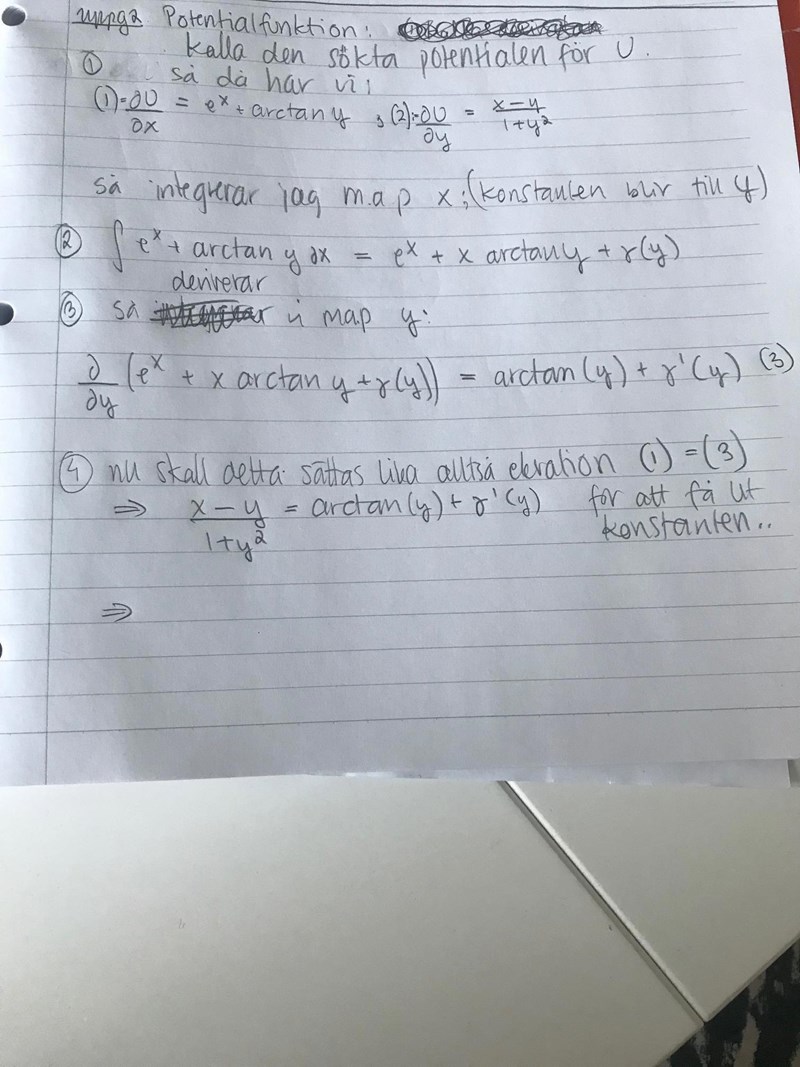 uppg2 Potentialfunktion:
Kalla den sökta potentialen för U.
① så då har vi:
(1)=∂U/∂x = eˣ + arctan y , (2):=∂U/∂y = x-y/1+y²
så integrerar jag m.a p x; (konstanten blir till y)
② ∫ eˣ + arctan y ∂x = eˣ + x arctan y + γ(y)
deriverar
③ så vi map y:
∂/∂y (eˣ + x arctan y + γ(y)) = arctan(y) + γ'(y) (3)
④ nu skall detta sättas lika alltså ekvation (1) = (3)
⇒ x-y/1+y² = arctan(y) + γ'(y) för att få ut
konstanten..
⇒